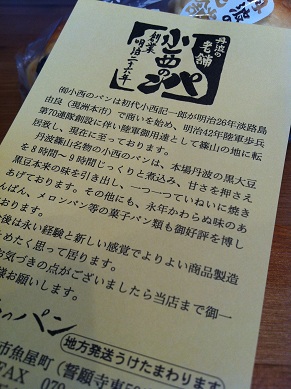 丹波の
老舗
小西の
パン
創業
明治二十六年
㈲小西のパンは初代小西記一郎が明治26年淡路島
由良(現洲本市)で商いを始め、明治42年陸軍歩兵
第70連隊創設に伴い陸軍御用達として篠山の地に転
居し、現在に至っております。
丹波篠山名物の小西のパンは、本場丹波の黒大豆
を8時間〜9時間じっくりと煮込み、甘さを押さえ
黒豆本来の味を引き出し、一つ一つていねいに焼き
あげております。その他にも、永年かわらぬ味のあ
んぱん、メロンパン等の菓子パン類も御好評を博し
おります。
後は永い経験と新しい感覚でよりよい商品製造
ためたく思って居ります。
お気づきの点がございましたら当店まで御一
様お願いします。
のパン
地方発送うけたまわります
市魚屋町(誓願寺東
FAX